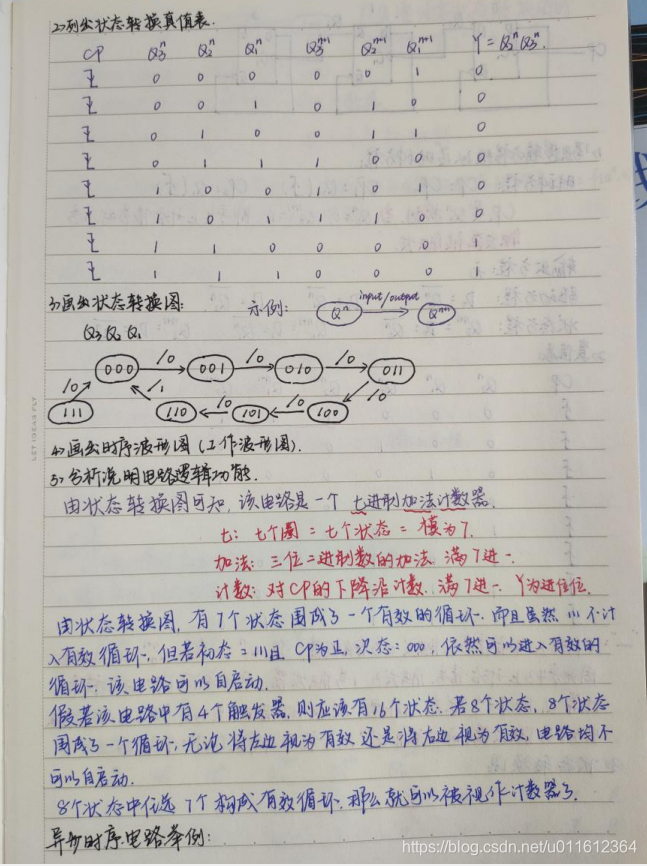 2>列出状态转换真值表.
CP Q₃ⁿ Q₂ⁿ Q₁ⁿ Q₃ⁿ⁺¹ Q₂ⁿ⁺¹ Q₁ⁿ⁺¹ Y=Q₃ⁿQ₂ⁿ.
0 0 0 0 0 1 0
0 0 1 0 1 0 0
0 1 0 0 1 1 0
0 1 1 1 0 0 0
1 0 0 1 0 1 0
1 0 1 1 1 0 0
1 1 0 0 0 0 1
1 1 1 0 0 0 1
3>画出状态转换图: 示例: Qⁿ input/output Qⁿ⁺¹
Q₃ Q₂ Q₁
000 /0 001 /0 010 /0 011
/0 /1 /0
111 110 /0 101 /0 100
4>画出时序波形图(工作波形图).
5>分析说明电路逻辑功能.
由状态转换图可知,该电路是一个七进制加法计数器.
七: 七个圈=七个状态=模为7.
加法: 三位二进制数的加法 满7进一.
计数: 对CP的下降沿计数. 满7进一. Y为进位位.
由状态转换图, 有7个状态围成了一个有效的循环. 而且虽然111不计
入有效循环, 但若初态=111且CP为正, 次态:000, 依然可以进入有效的
循环. 该电路可以自启动.
假若该电路中有4个触发器, 则应该有16个状态. 若8个状态, 8个状态
围成了一个循环, 无论将左边视为有效还是将右边视为有效, 电路均不
可以自启动.
8个状态中任选7个构成有效循环. 那么就可以被视作计数器了.
异步时序电路举例:
LET IDEAS FLY
https://blog.csdn.net/u011612364